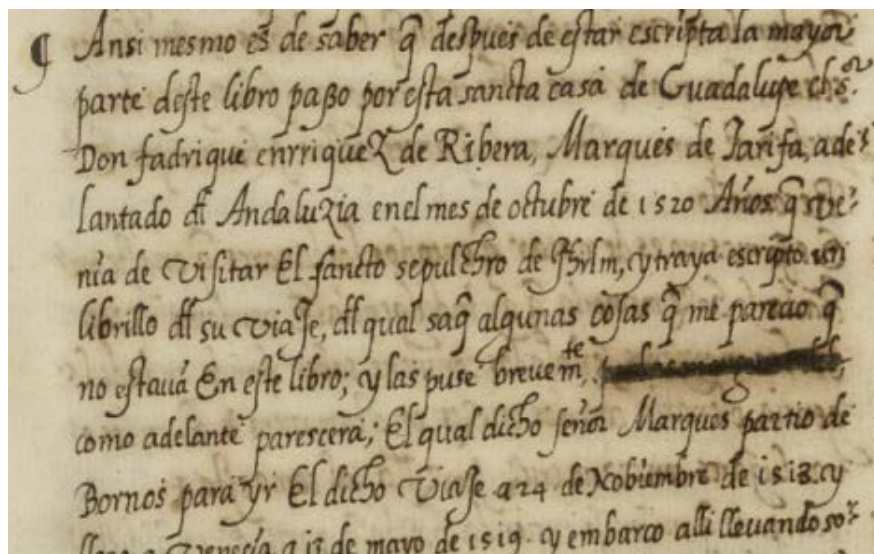 ¶ Ansi mesmo es de saber q̃ despues de estar escripta la mayor
parte deste libro passo por esta sancta casa de Guadalupe el s.ᵒʳ
Don fadrique enrriquez de Ribera, Marques de Tarifa, ade-
lantado dl Andaluzia enel mes de octubre de 1520 Años. q̃ ve-
nia de Visitar El sancto sepulchro de Jhrlm, y traya escripto un
librillo dl su viaje, dl qual saq̃ algunas cosas q̃ me parecio q̃
no estavã En este libro; y las puse brevemᵗᵉ,
como adelante parescera; El qual dicho señor Marques partio de
Bornos para yr El dicho Viaje a 24 de Nobiembre de 1518. y
llego a Venecia a 13 de mayo de 1519. y embarco alli llevando so-